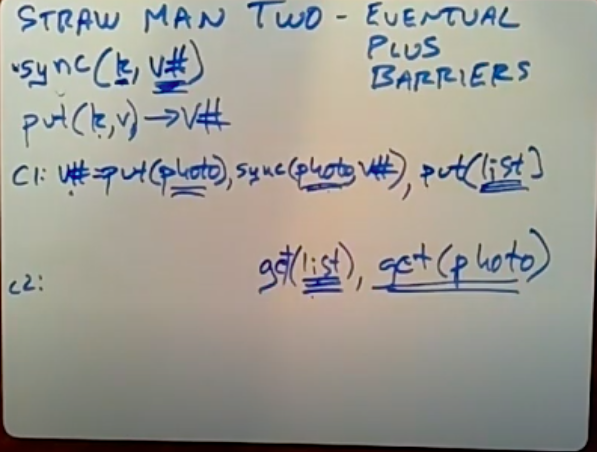 STRAW MAN TWO - EVENTUAL
PLUS
BARRIERS
sync(k, V#)
put(k,v) → V#
C1: V#=put(photo), sync(photo, V#), put(list)
C2: get(list), get(photo)